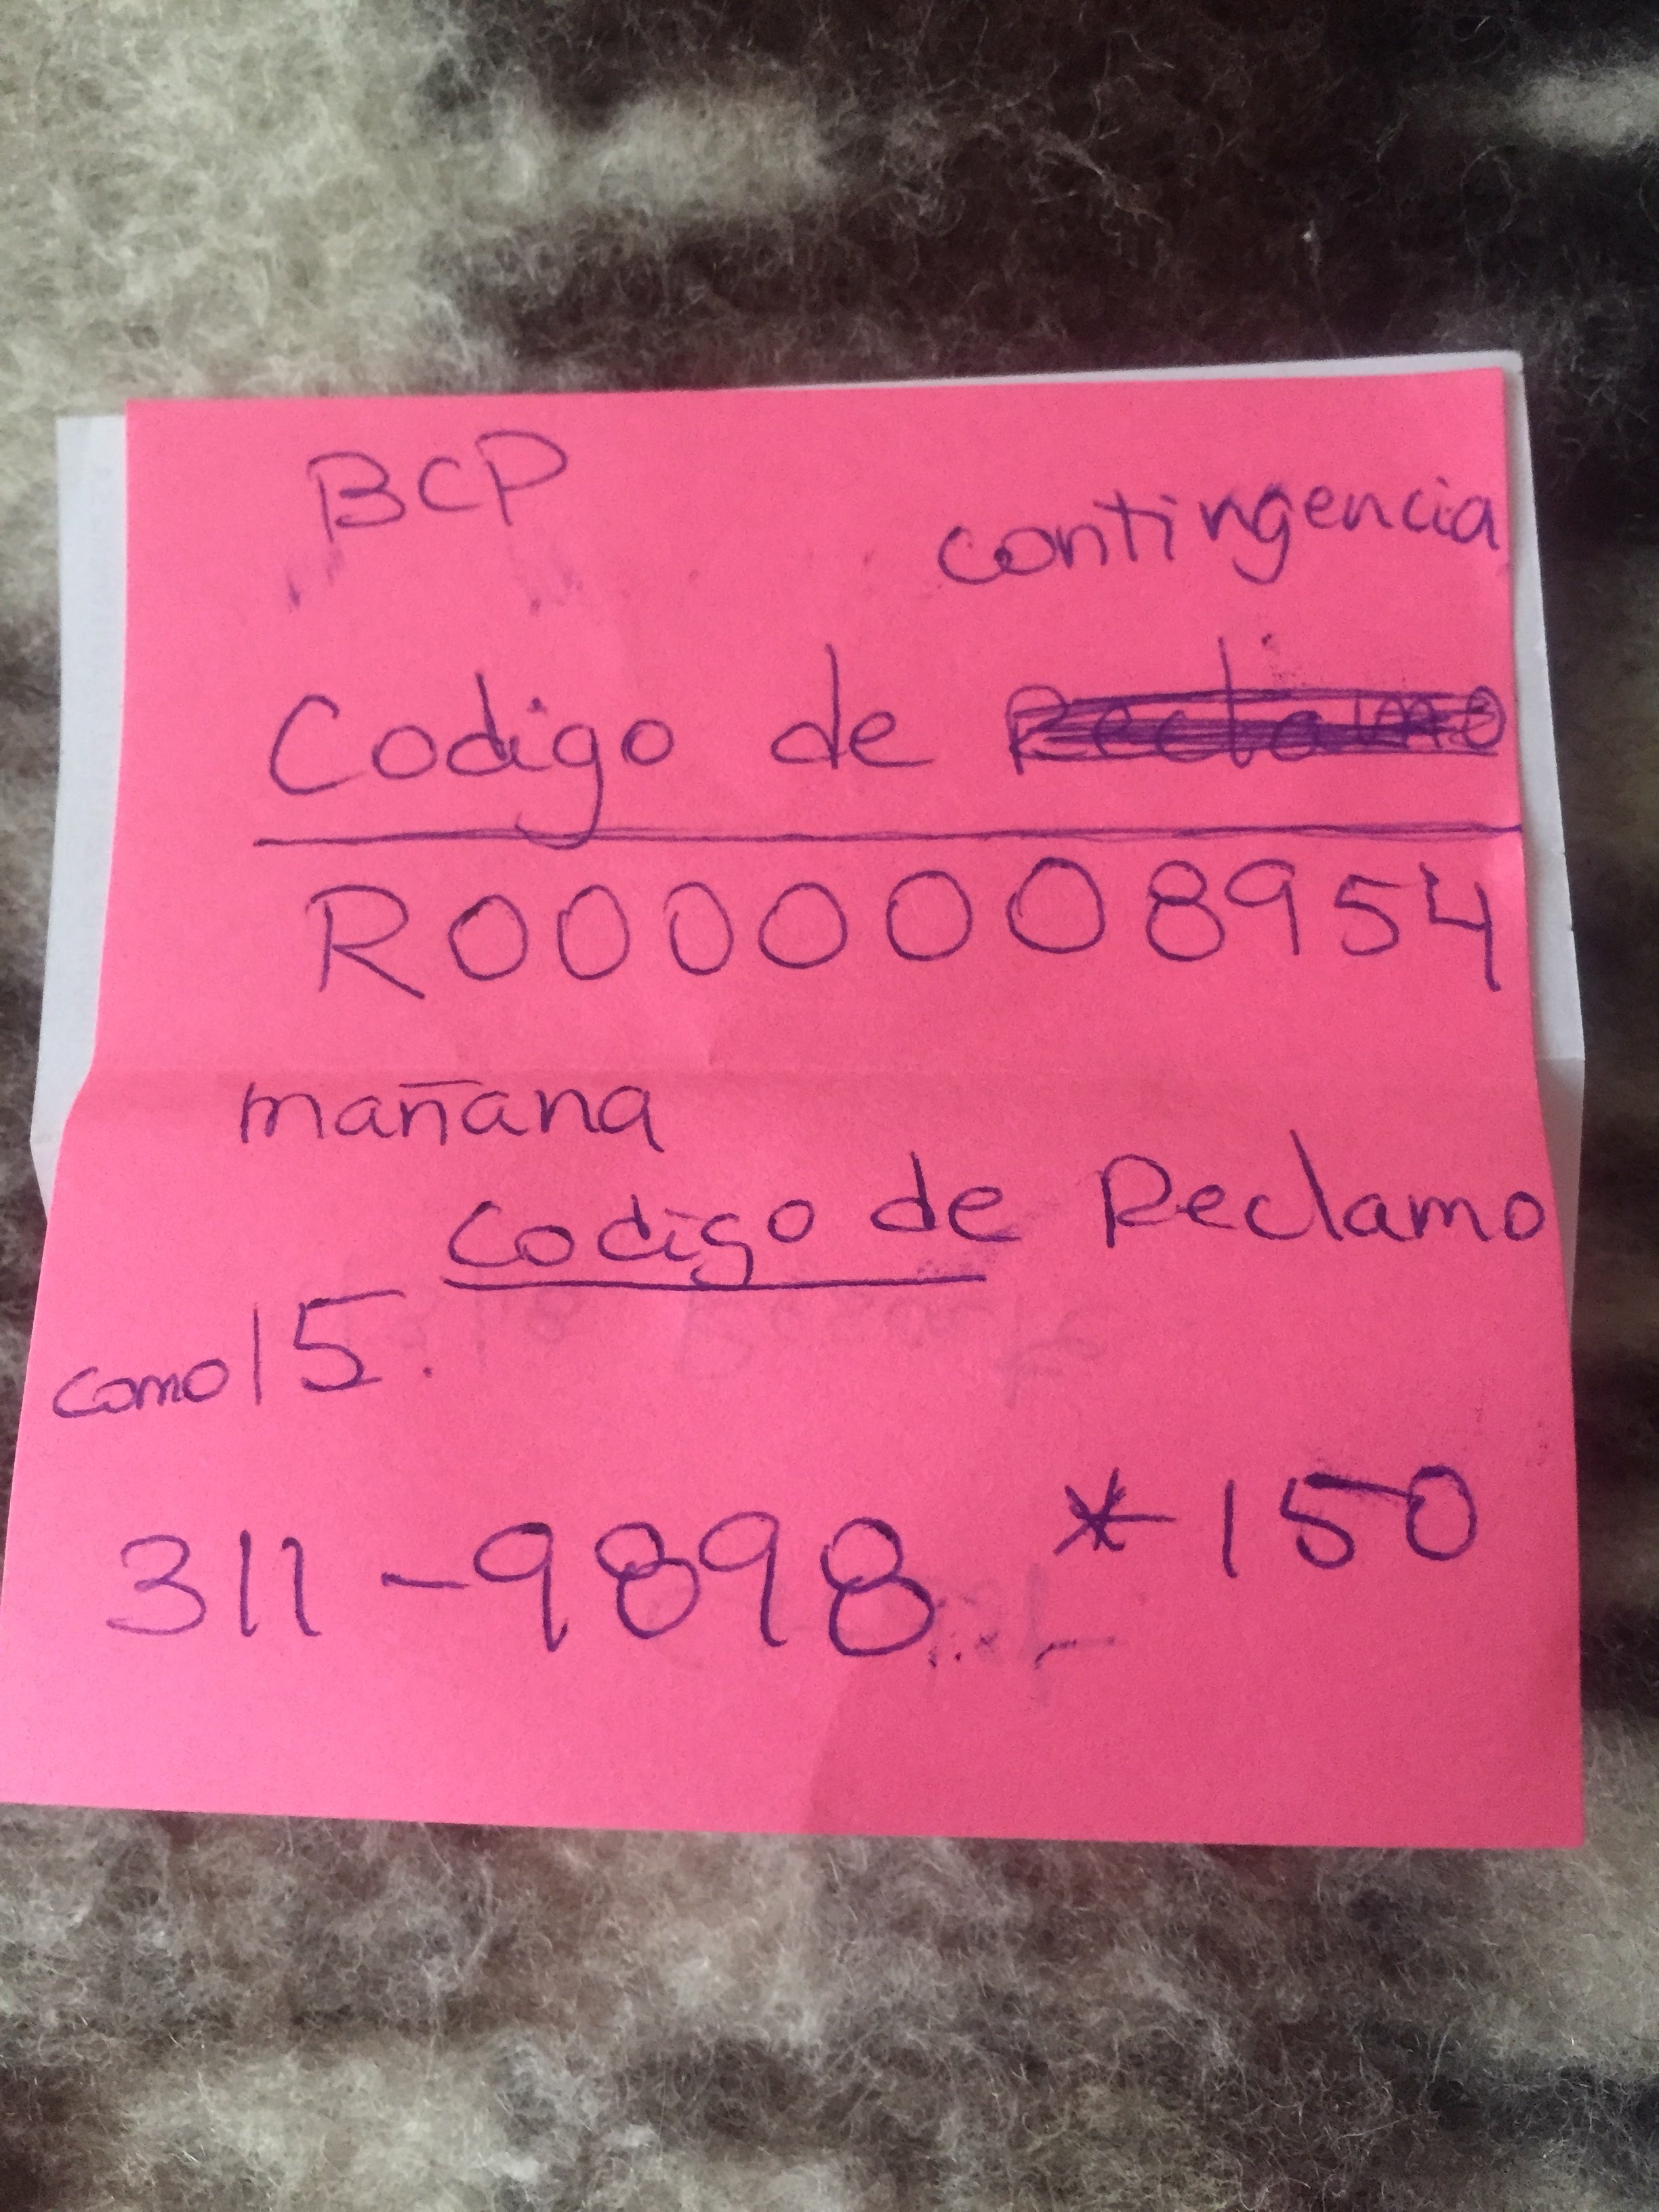 BCP
contingencia
Codigo de Reclamo
R0000008954
mañana
Codigo de Reclamo
como 15.
311-9898 * 150